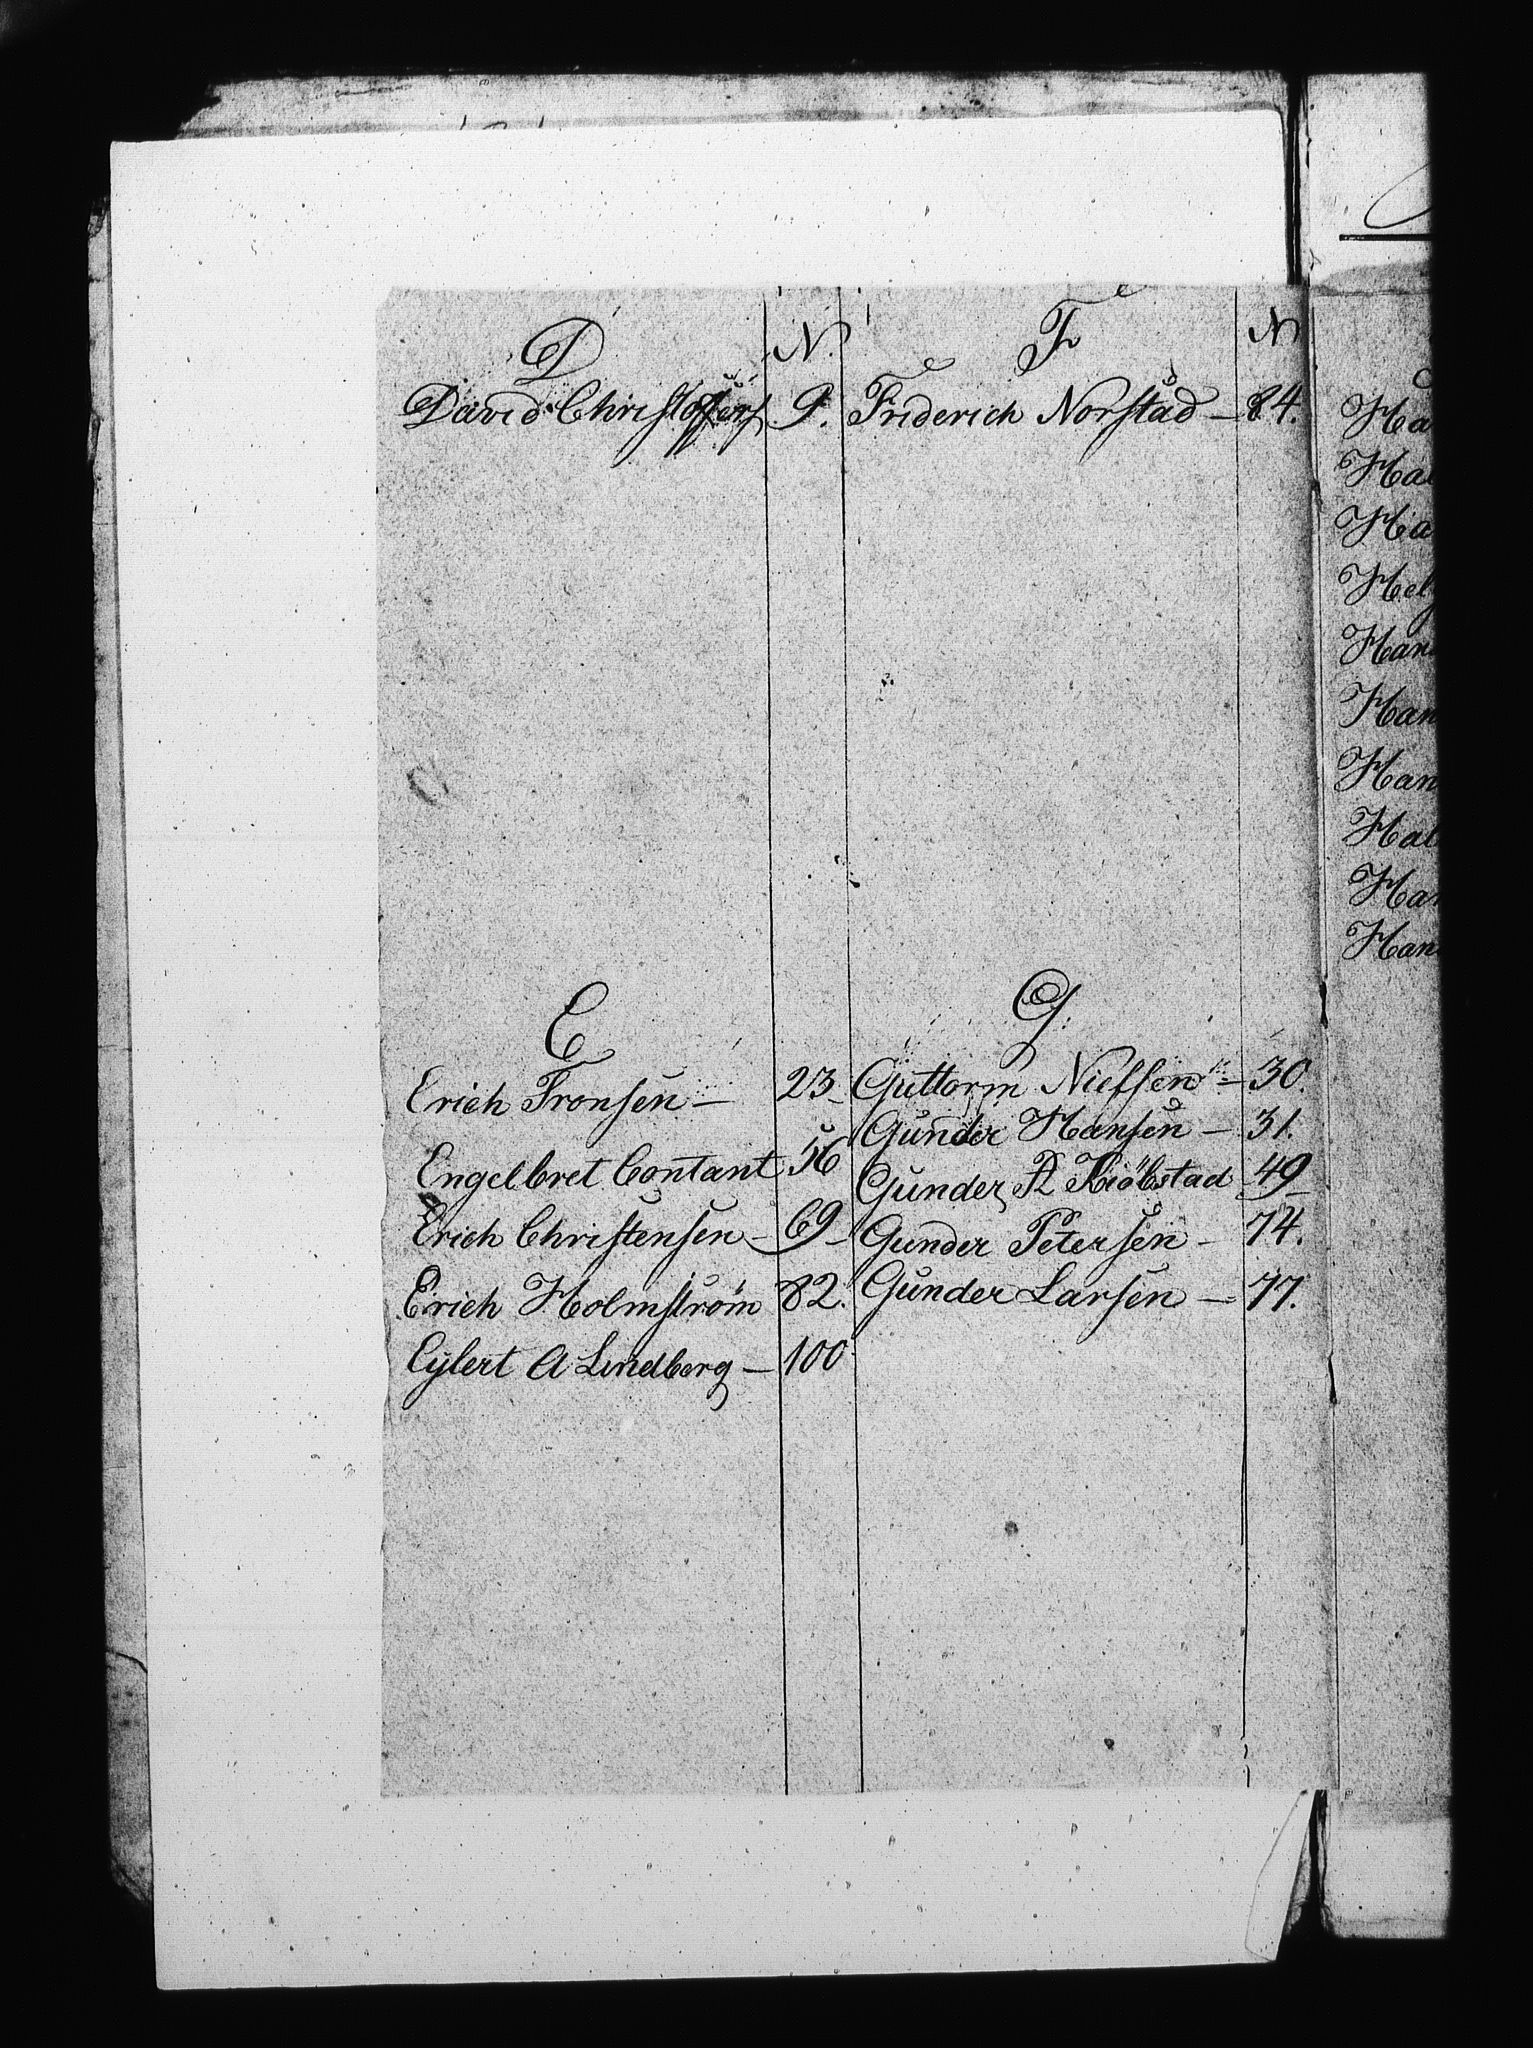 D N.
David Christoffers 9.
E
Erich Fronsen — 23
Engelbret Contant 56
Erich Christensen — 69
Erich Holmstrøm 82.
Eylert A Lindberg — 100
F N
Friderich Norstad — 84.
G.
Guttorm Nielsen — 30.
Gunder Hansen — 31.
Gunder Kiøbstad 49
Gunder Petersen — 74.
Gunder Larsen — 77.
Ha
Hal
Ha
Hel
Han
Han
Han
Hal
Han
Han